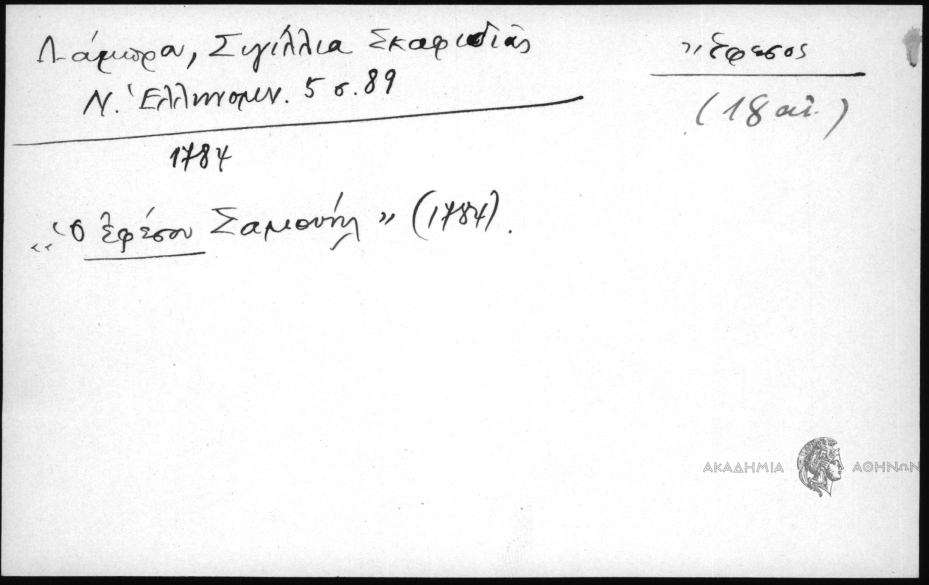 Λάμπρου, Σιγίλλια Σκαφιδιάς
Ν. Ἑλληνομν. 5 σ. 89
Ἔφεσος
(18 αἰ.)
1784
„Ὁ Ἐφέσου Σαμουήλ” (1784).
ΑΚΑΔΗΜΙΑ ΑΘΗΝΩΝ